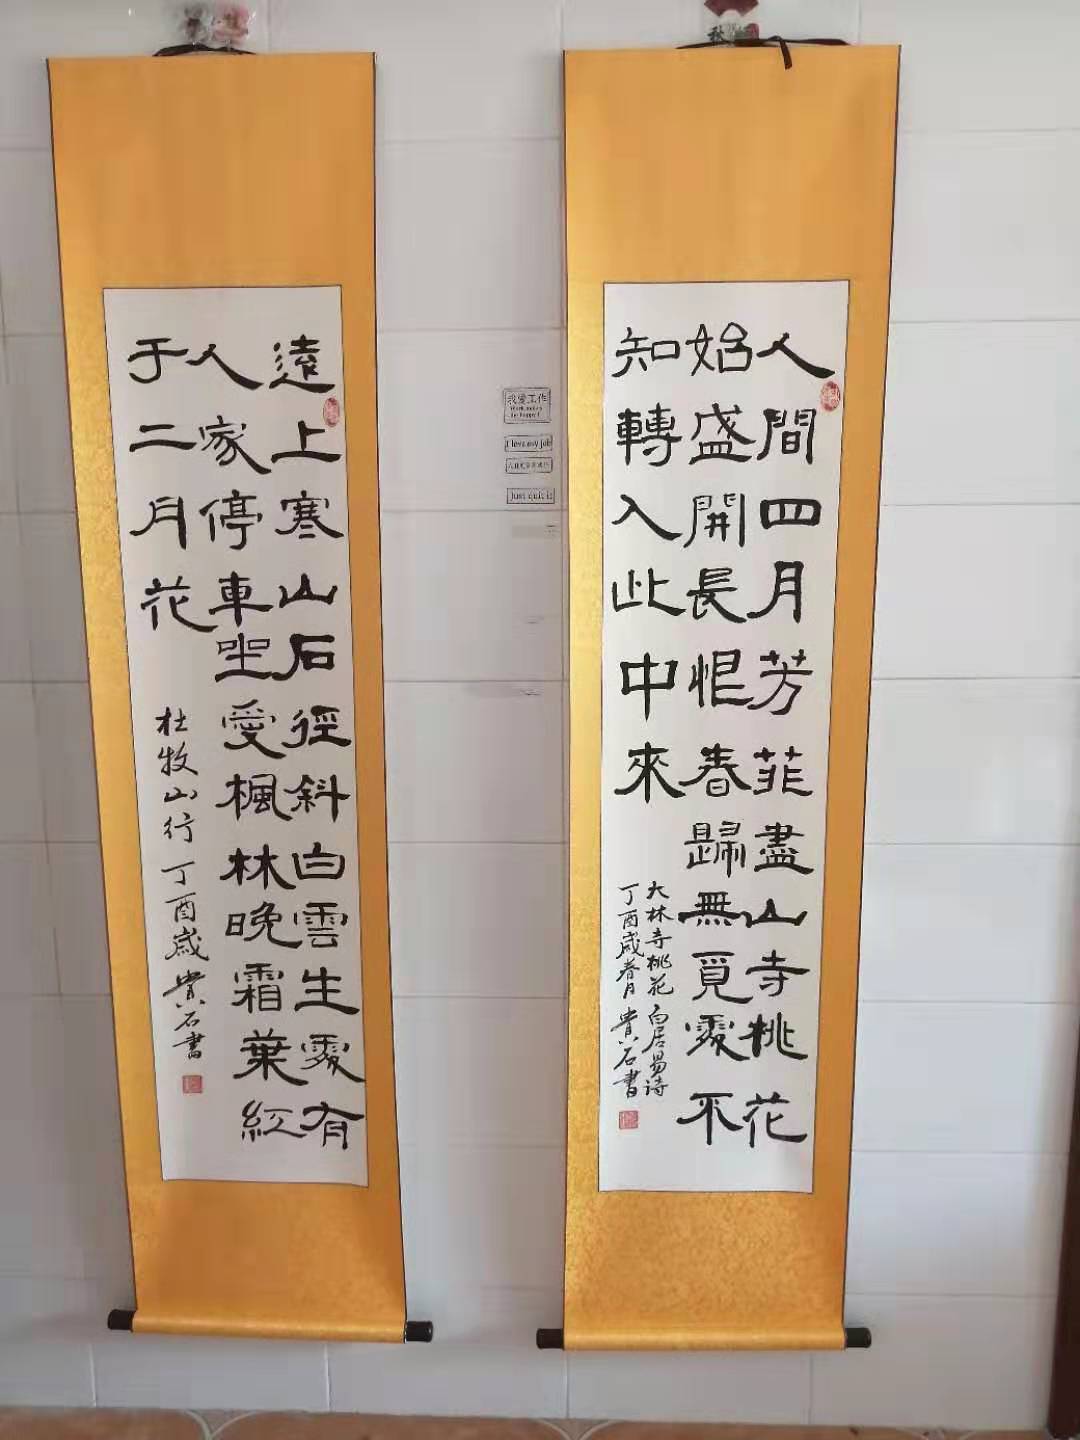 人間四月芳菲盡山寺桃花
始盛開長恨春歸無覓處不
知轉入此中來
大林寺桃花 白居易诗
丁酉歲春月 貴石書
我爱工作
I love my job
Just quit it
遠上寒山石徑斜白雲生處有
人家停車坐愛楓林晚霜葉紅
于二月花
杜牧山行 丁酉歲 貴石書